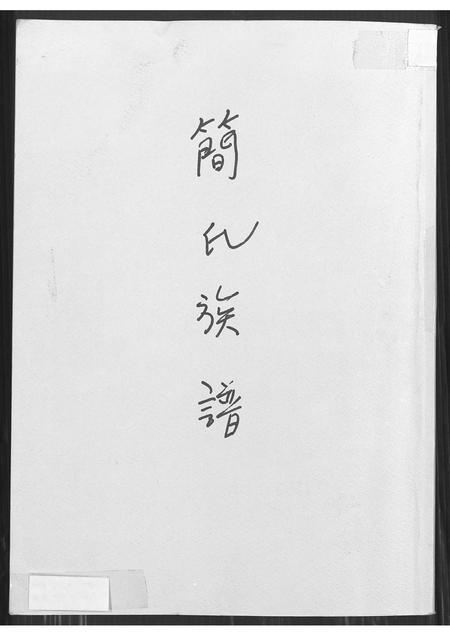 簡氏族譜